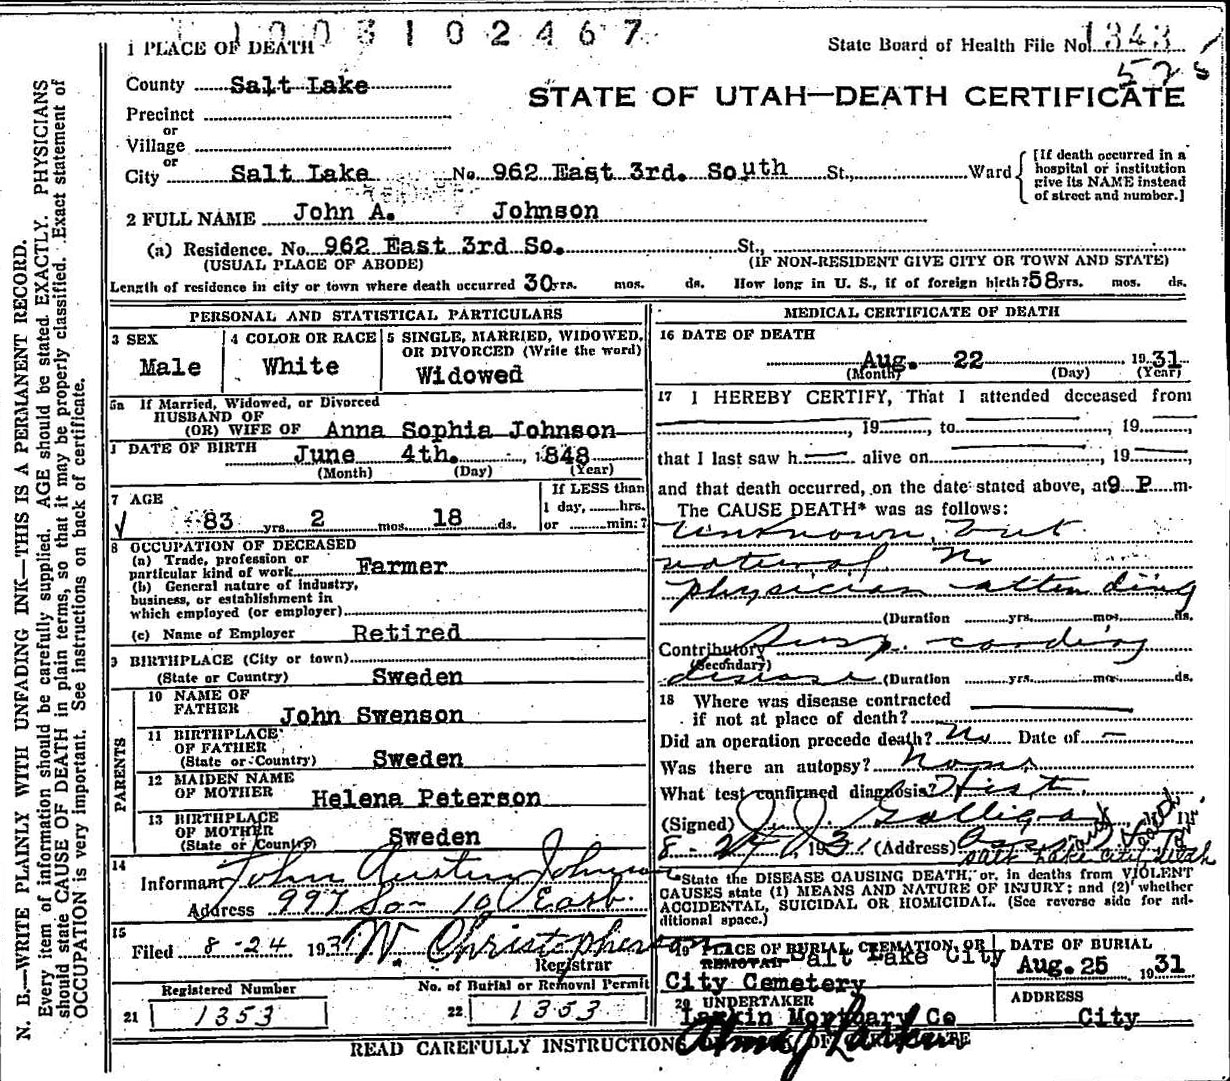 1003102467
1 PLACE OF DEATH
State Board of Health File No. 1343
525
County Salt Lake
STATE OF UTAH—DEATH CERTIFICATE
Precinct
or
Village
or
City Salt Lake No. 962 East 3rd. South St., Ward
[If death occurred in a hospital or institution give its NAME instead of street and number.]
2 FULL NAME John A. Johnson
(a) Residence. No. 962 East 3rd So. St.,
(USUAL PLACE OF ABODE) (IF NON-RESIDENT GIVE CITY OR TOWN AND STATE)
Length of residence in city or town where death occurred 30 yrs. mos. ds. How long in U. S., if of foreign birth? 58 yrs. mos. ds.
PERSONAL AND STATISTICAL PARTICULARS
3 SEX
Male
4 COLOR OR RACE
White
5 SINGLE, MARRIED, WIDOWED, OR DIVORCED (Write the word)
Widowed
5a If Married, Widowed, or Divorced
HUSBAND OF
(OR) WIFE OF Anna Sophia Johnson
DATE OF BIRTH June 4th. , 1848
(Month) (Day) (Year)
7 AGE
83 yrs 2 mos. 18 ds.
If LESS than
1 day, hrs.
or min.?
8 OCCUPATION OF DECEASED
(a) Trade, profession or
particular kind of work Farmer
(b) General nature of industry,
business, or establishment in
which employed (or employer)
(c) Name of Employer Retired
9 BIRTHPLACE (City or town)
(State or Country) Sweden
PARENTS
10 NAME OF
FATHER John Swenson
11 BIRTHPLACE
OF FATHER
(State or Country) Sweden
12 MAIDEN NAME
OF MOTHER Helena Peterson
13 BIRTHPLACE
OF MOTHER
(State or Country) Sweden
14
Informant John Austin Johnson
Address 997 So 10 East.
15
Filed 8-24 1931 W. Christopherson
Registrar
Registered Number
21 1353
No. of Burial or Removal Permit
22 1353
MEDICAL CERTIFICATE OF DEATH
16 DATE OF DEATH
Aug. 22 1931
(Month) (Day) (Year)
17 I HEREBY CERTIFY, That I attended deceased from
, 19 , to , 19 ,
that I last saw h alive on , 19 ,
and that death occurred, on the date stated above, at 9 P m.
The CAUSE DEATH* was as follows:
Unknown, but
natural No
physician attending
(Duration yrs. mos. ds.
Contributory
(Secondary)
disease (Duration yrs. mos. ds.
18 Where was disease contracted
if not at place of death?
Did an operation precede death? No Date of —
Was there an autopsy? None
What test confirmed diagnosis? Hist
(Signed) J. J. Galligan
8-24, 1931 (Address)
Salt Lake City Utah
*State the DISEASE CAUSING DEATH, or, in deaths from VIOLENT
CAUSES state (1) MEANS AND NATURE OF INJURY; and (2) whether
ACCIDENTAL, SUICIDAL OR HOMICIDAL. (See reverse side for ad-
ditional space.)
19 PLACE OF BURIAL CREMATION OR
REMOVAL Salt Lake City
City Cemetery
DATE OF BURIAL
Aug. 25 1931
20 UNDERTAKER
Larkin Mortuary Co
ADDRESS
City
READ CAREFULLY INSTRUCTIONS
N. B.—WRITE PLAINLY WITH UNFADING INK—THIS IS A PERMANENT RECORD.
Every item of information should be carefully supplied. AGE should be stated EXACTLY. PHYSICIANS
should state CAUSE OF DEATH in plain terms, so that it may be properly classified. Exact statement of
OCCUPATION is very important. See instructions on back of certificate.